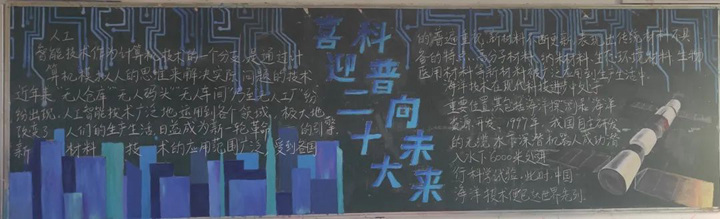 人工
智能技术作为计算机技术的一个分支,是通过计
算机模拟人的思维来解决实际问题的技术
近年来"无人仓库""无人码头""无人车间""无人工厂"纷
纷出现,人工智能技术广泛地运用到各个领域,极大地
改变了人们的生产生活,日益成为新一轮革命的引擎
新材料技术的应用范围广泛,受到各国
喜迎二十大
科普向未来
的普遍重视,新材料不断更新,表现出传统材料不具
备的特高分子材料,纳米材料,生态环境材料,生物
医用材料等新材料被广泛应用到生产生活中
海洋技术在现代科技进步处于
重要位置,其包括海洋探测和海洋
资源开发,1997年,我国自主研发
的无缆水下深潜机器人成功潜
入水下6000米处进
行科学试验,此时,中国
海洋技术便已达世界先列